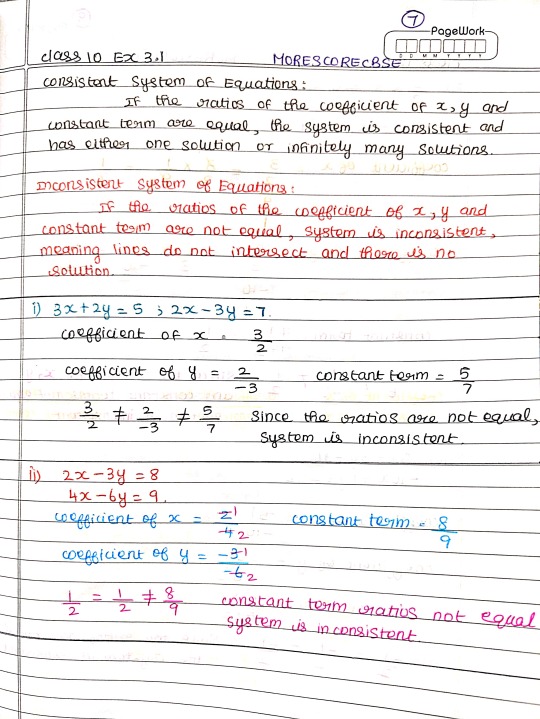 7
PageWork
D D M M Y Y Y Y
class 10 Ex 3.1 MORESCORECBSE
consistent System of Equations:
If the ratios of the coefficient of x, y and
constant term are equal, the system is consistent and
has either one solution or infinitely many solutions.
Inconsistent System of Equations:
If the ratios of the coefficient of x, y and
constant term are not equal, system is inconsistent,
meaning lines do not intersect and there is no
solution.
i) 3x+2y=5 ; 2x-3y=7.
coefficient of x = 3/2
coefficient of y = 2/-3 constant term = 5/7
3/2 ≠ 2/-3 ≠ 5/7 since the ratios are not equal,
System is inconsistent.
ii) 2x-3y=8
4x-6y=9.
coefficient of x = 2 1/4 2 constant term = 8/9
coefficient of y = -3 1/-6 2
1/2 = 1/2 ≠ 8/9 constant term ratios not equal
System is inconsistent.